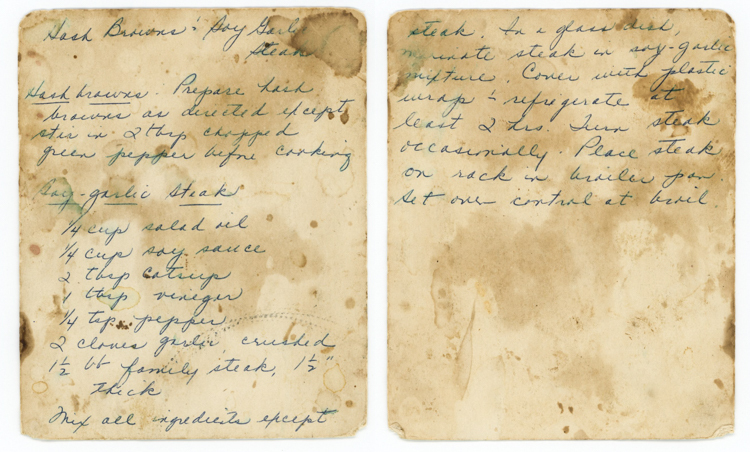 Hash Browns & Soy Garlic
Steak
Hash browns. Prepare hash
browns as directed except,
stir in 2 tbsp chopped
green pepper before cooking
Soy-garlic Steak
1/4 cup salad oil
1/4 cup soy sauce
2 tbsp catsup
1 tbsp vinegar
1/4 tsp pepper
2 cloves garlic crushed
1 1/2 lb family steak, 1 1/2"
thick
Mix all ingredients except
steak. In a glass dish,
marinate steak in soy-garlic
mixture. Cover with plastic
wrap & refrigerate at
least 2 hrs. Turn steak
occasionally. Place steak
on rack in broiler pan.
Set oven control at broil.